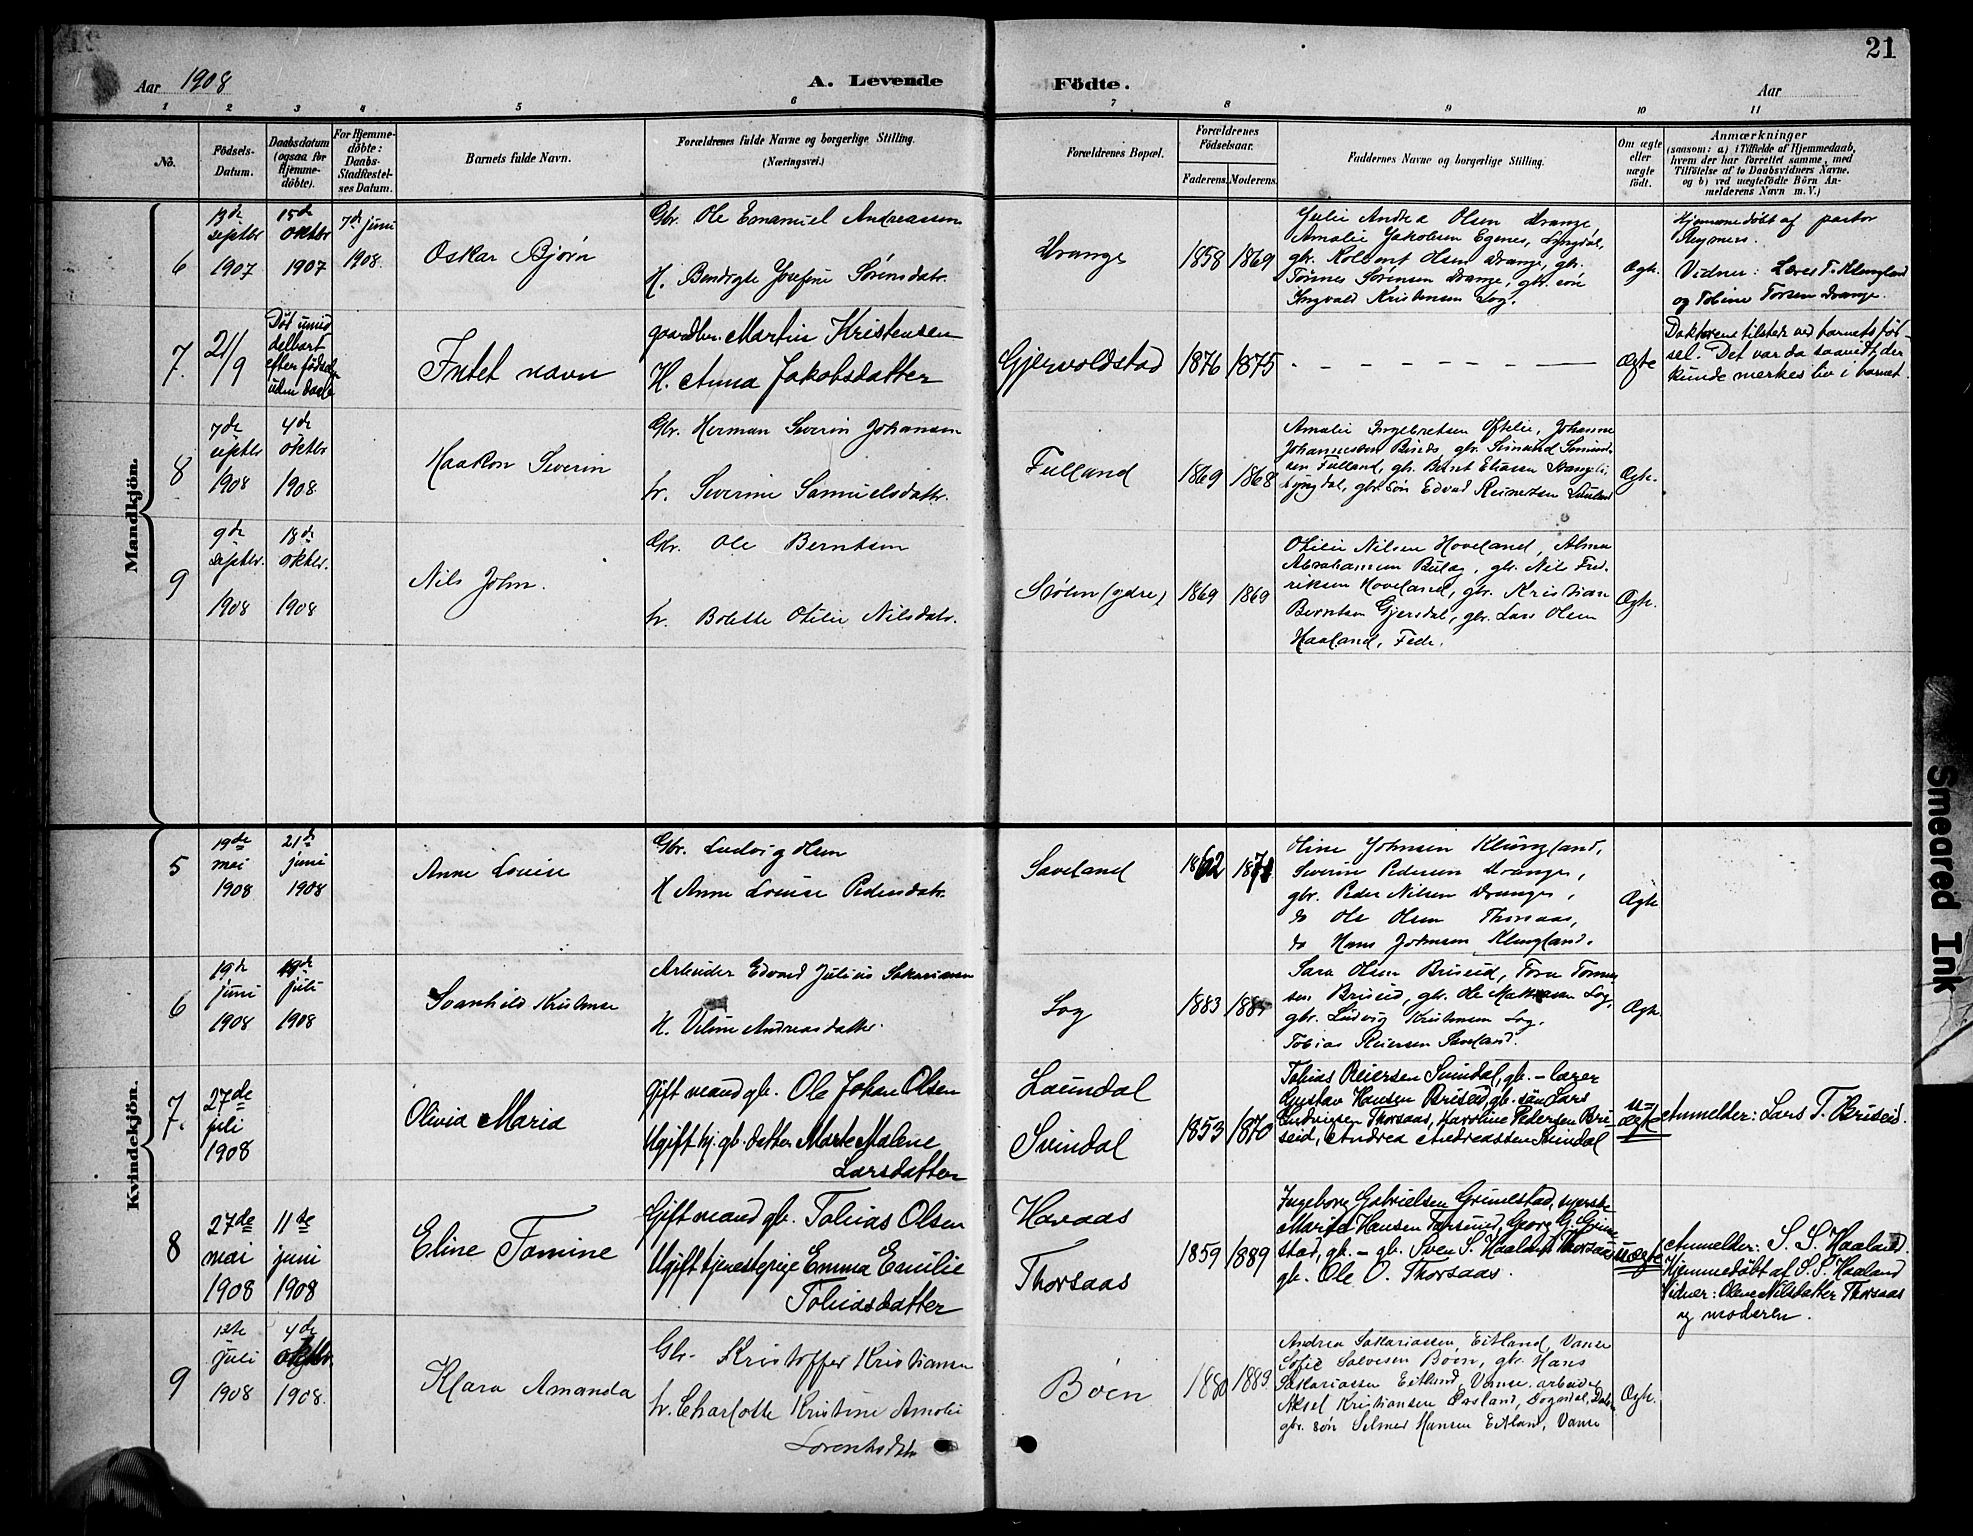 21
Aar 1908
A. Levende
Födte.
Aar
1 2 3 4 5 6 7 8 9 10 11
No.
Födsels-
Datum.
Daabsdatum
(ogsaa for
Hjemme-
döbte).
For Hjemme-
döbte:
Daabs-
Stadfæstel-
ses Datum.
Barnets fulde Navn.
Forældrenes fulde Navne og borgerlige Stilling.
(Næringsvei.)
Forældrenes Bopæl.
Forældrenes
Födselsaar.
Faderens. Moderens.
Faddernes Navne og borgerlige Stilling.
Om ægte
eller
uægte
födt.
Anmærkninger
(saasom: a) i Tilfælde af Hjemmedaab,
hvem der har forrettet samme, med
Tilföielse af to Daabsvidners Navne,
og b) ved uægtefödte Börn An-
melderens Navn m. V.)
Mandkjön.
6
septbr
1907
15de
oktbr
1907
7de juni
1908.
Oskar Bjørn
Gbr. Ole Emanuel Andreassen
H. Bendigte Josefine Sørensdatr.
Drange
1858 1869
Julie Andrea Olsen Drange,
Amalie Jakobsen Egenes, Lyngdal,
gbr. Kolbent Olsen Drange, gbr.
Tønnes Sørensen Drange, gbr. søn
Ingvald Kristensen Log.
Ægte.
Hjemmedøbt af pastor
Vidner: Lærer T. Klungland
og Tobine Torsen Drange.
7.
21/9
Død umid
delbart
efter fødselen
uden daab
Intet navn
gaardbr. Martin Kristensen
H. Anna Jakobsdatter
Gjervoldstad
1876 1875
- - - - - - -
Ægte
Doktorene tilstede ved barnets fød-
sel. Det var da saavidt der
kunde merkes liv i barnet.
8
7de
septbr
1908
4de
oktbr
1908.
Haakon Severin
Gbr. Herman Severin Johansen
h. Severine Samuelsdatr.
Fulland
1869 1868
Amalie Ingebretsen Oftelie, Johanne
Lyngdal, gbr. søn Edvad Reinertsen
Ægte.
9
9de
septbr.
1908
18de
oktbr.
1908
Nils John.
Gbr. Ole Berntsen
h. Bolette Otilie Nilsdatr.
Støien (ydre)
1869 1869
Otilie Nilsen Hoveland, Alma
Abrahamsen Bulæg, gbr. Nils Fred-
riksen Hoveland, gbr. Kristian
Berntsen Gjersdal, gbr. Lars Olsen
Haaland, Fede.
Ægte.
Kvindekjön.
5
19de
mai
1908
21de
juni
1908
Anne Louise
Gbr. Ludvig Olsen
H Anne Louise Pedersdatr.
Saveland
1862 1871
Oline Johnsen Klungland,
Severine Pedersen Drange,
gbr. Peder Nilsen Drange,
do Ole Olsen Thorsaas,
do Hans Johnsen Klungland.
Ægte
6
19de
juni
1908
19de
juli
1908
Svanhild Kristense
Arbeider Edvard Julius Sakariassen
H. Veline Andreasdatter.
Log
1883
Sara Olsen Briseid, Tora Tønne
sen Briseid, gbr. Ole Mathiesen Log,
gbr. Ludvig Kristensen Log,
Tobias Reiersen Saveland.
Ægte.
7.
27de
juli
1908
Olivia Maria
Gift mand gb. Ole Johan Olsen
Ugift hj. gb. datter Marte Malene
Larsdatter
Laundal
Svindal
1853 1870
Tobias Reiersen Svindal, gb. - lærer
Gustav Hansen Briseid, gb. søn Lars
Ludvigsen Thorsaas, Karoline Pedersen Bri-
seid, Andrea Andreassen Svindal
u-
ægte
Anmelder: Lars T. Briseid.
8
27de
mai
1908
11te
juni
1908
Eline Tomine
Gift mand gb. Tobias Olsen
Ugift tjenestepige Emma Emilie
Tobiasdatter
Havaas
Thorsaas
1859 1889
Ingeborg Gabrielsen Grimestad, syerske
Marie Hansen Farsund, Georg G. Grime
stad, gb. - gb. Sven S. Haaland Thorsaas
gb. Ole O. Thorsaas.
uægte
Anmelder: S. S. Haaland.
Hjemmedøbt af S. S. Haaland
Vidner: Olene Nilsdatter Thorsaas
og moderen.
9
12te
juli
1908
4de
oktbr
1908.
Klara Amanda
Gbr. Kristoffer Kristiansen
h. Charlotte Kristine Amalie
Lorentsdatr
Bøen
1880 1889
Andrea Sakariassen, Eitland, Vanse
Sofie Salvesen Bøen, gbr. Hans
Sakariassen Eitland, Vanse, arbeider
Aksel Kristiansen
gbr. søn Selmer Hansen Eitland, Vanse
Ægte.
Smeared Ink